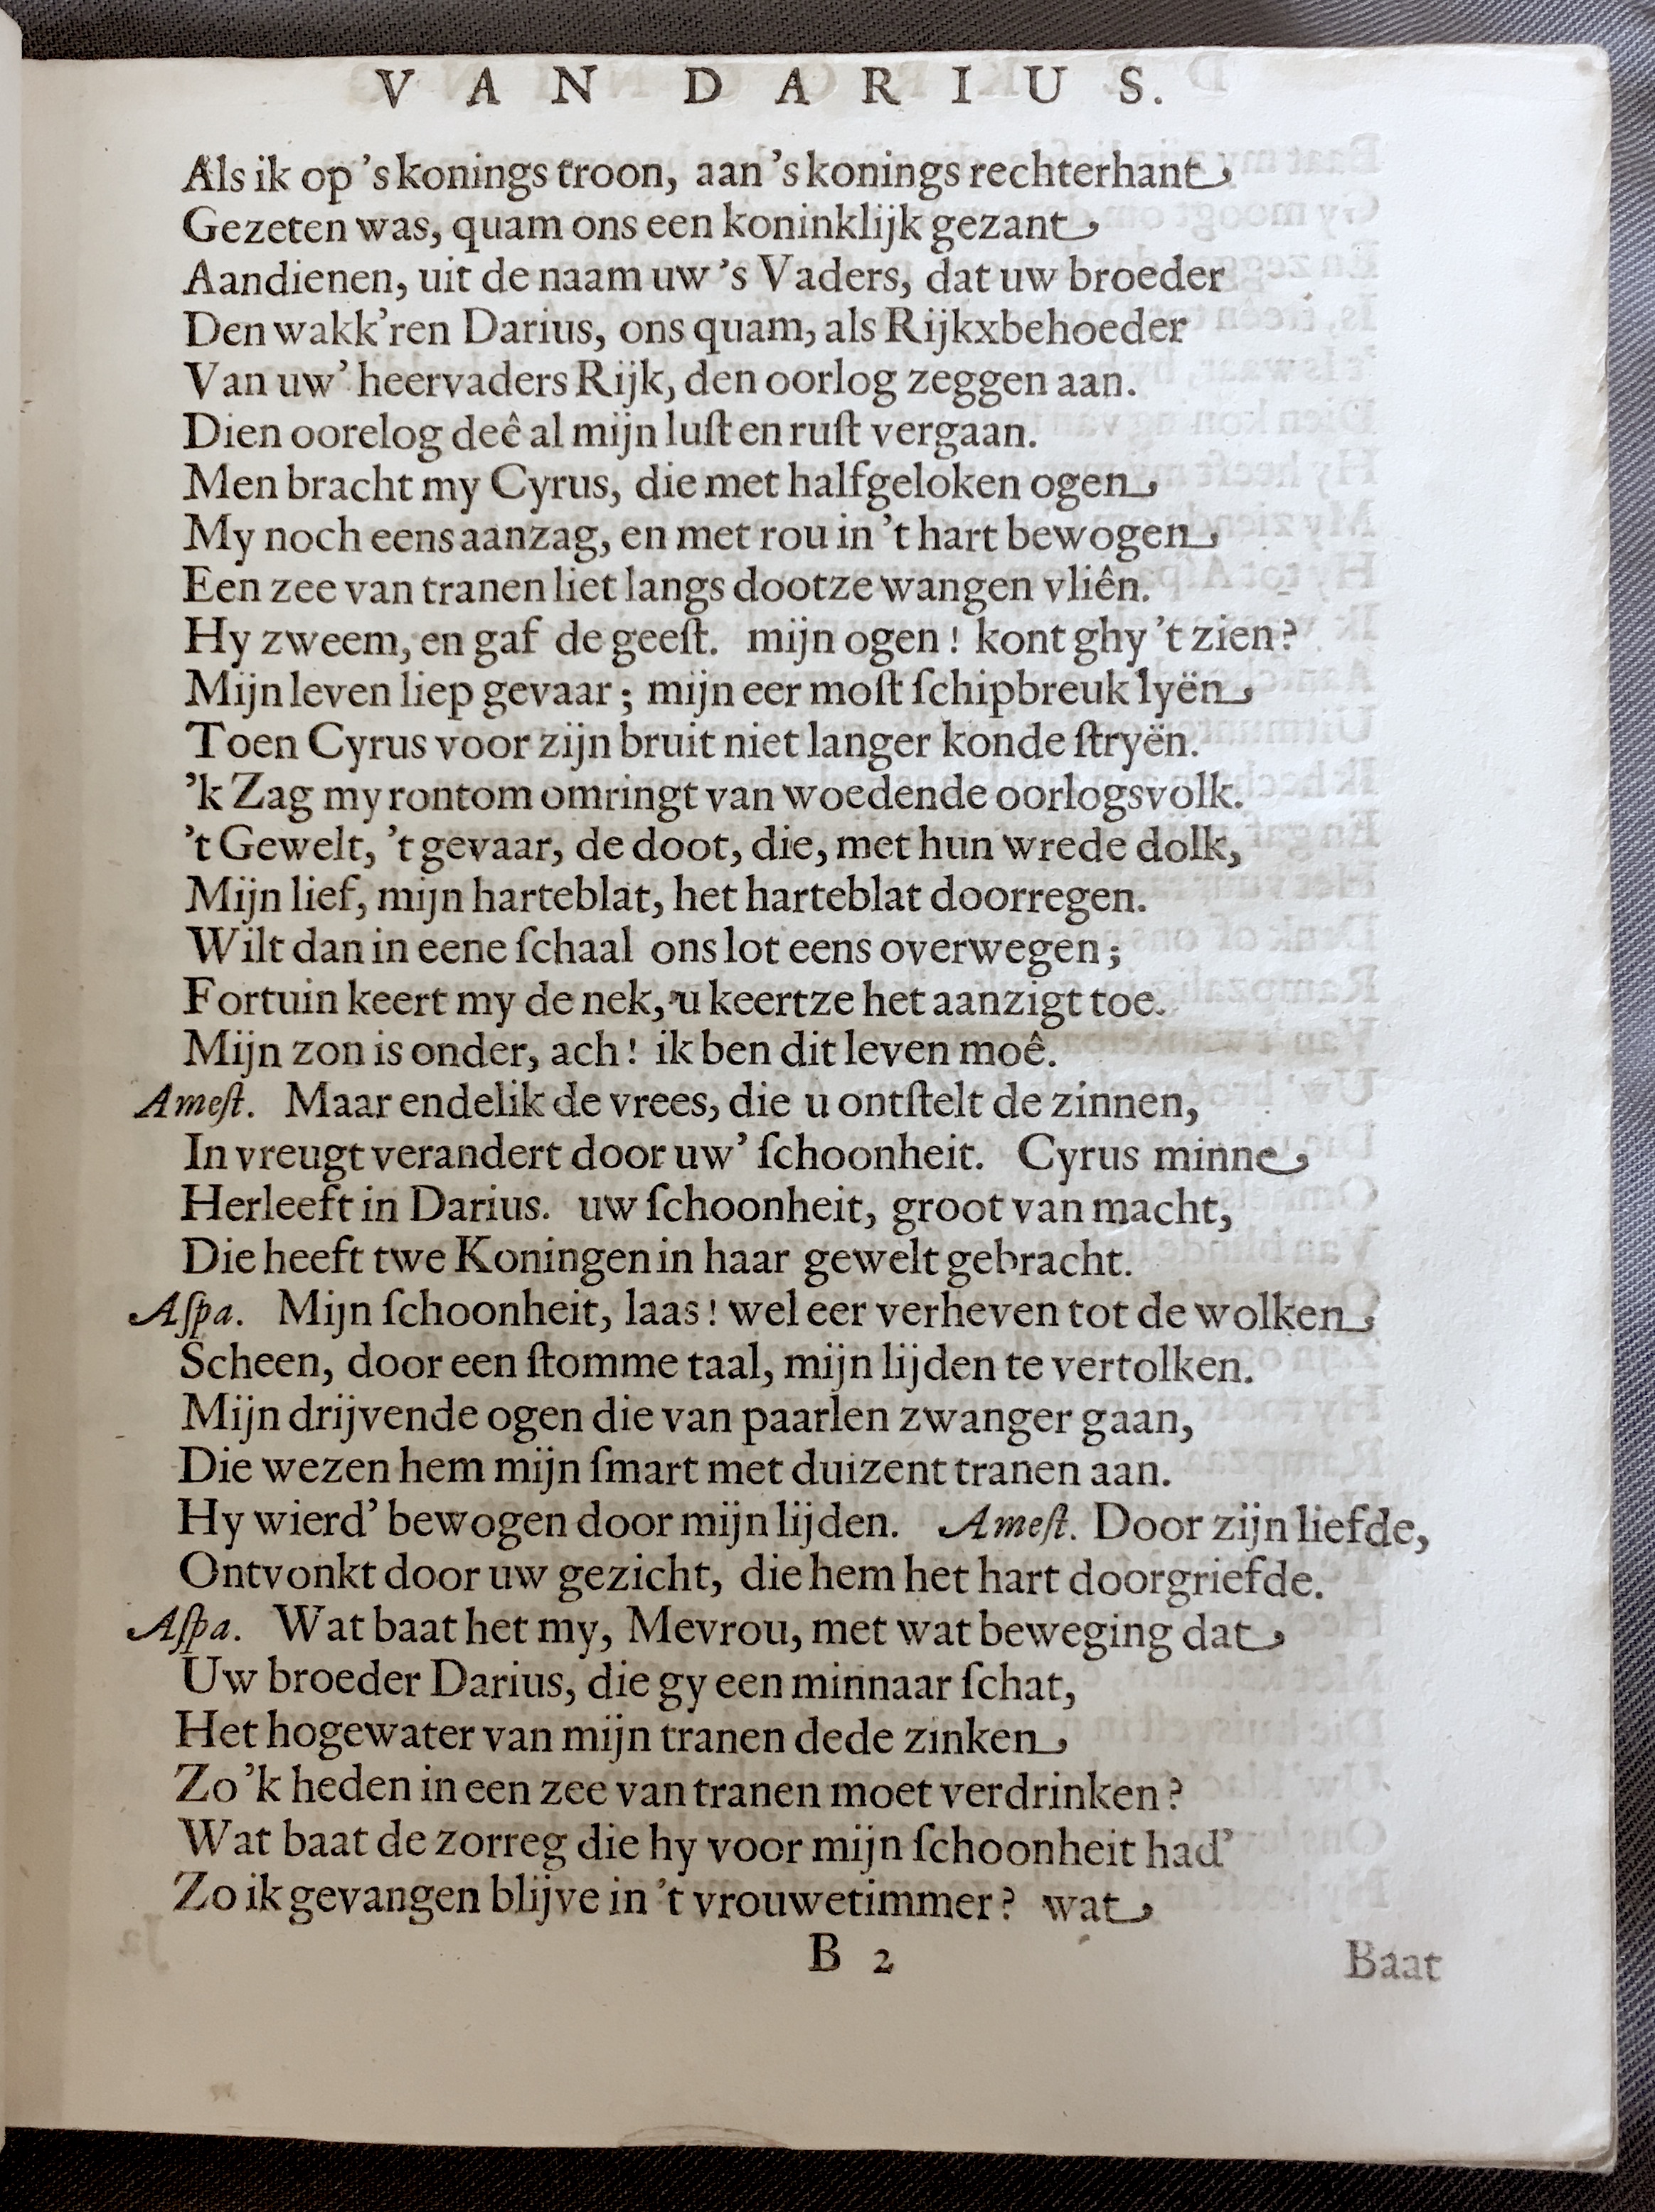 VAN DARIUS.
Als ik op 's konings troon, aan 's konings rechterhant
Gezeten was, quam ons een koninklijk gezant
Aandienen, uit de naam uw 's Vaders, dat uw broeder
Den wakk'ren Darius, ons quam, als Rijkxbehoeder
Van uw' heervaders Rijk, den oorlog zeggen aan.
Dien oorelog deê al mijn luſt en ruſt vergaan.
Men bracht my Cyrus, die met halfgeloken ogen
My noch eens aanzag, en met rou in 't hart bewogen
Een zee van tranen liet langs dootze wangen vliên.
Hy zweem, en gaf de geeſt. mijn ogen! kont ghy 't zien?
Mijn leven liep gevaar; mijn eer moſt ſchipbreuk lyën
Toen Cyrus voor zijn bruit niet langer konde ſtryën.
'k Zag my rontom omringt van woedende oorlogsvolk.
't Gewelt, 't gevaar, de doot, die, met hun wrede dolk,
Mijn lief, mijn harteblat, het harteblat doorregen.
Wilt dan in eene ſchaal ons lot eens overwegen;
Fortuin keert my de nek, u keertze het aanzigt toe.
Mijn zon is onder, ach! ik ben dit leven moê.
Ameſt. Maar endelik de vrees, die u ontſtelt de zinnen,
In vreugt verandert door uw' ſchoonheit. Cyrus minne
Herleeft in Darius. uw ſchoonheit, groot van macht,
Die heeft twe Koningen in haar gewelt gebracht.
Aſpa. Mijn ſchoonheit, laas! wel eer verheven tot de wolken
Scheen, door een ſtomme taal, mijn lijden te vertolken.
Mijn drijvende ogen die van paarlen zwanger gaan,
Die wezen hem mijn ſmart met duizent tranen aan.
Hy wierd' bewogen door mijn lijden. Ameſt. Door zijn liefde,
Ontvonkt door uw gezicht, die hem het hart doorgriefde.
Aſpa. Wat baat het my, Mevrou, met wat beweging dat
Uw broeder Darius, die gy een minnaar ſchat,
Het hogewater van mijn tranen dede zinken
Zo 'k heden in een zee van tranen moet verdrinken?
Wat baat de zorreg die hy voor mijn ſchoonheit had'
Zo ik gevangen blijve in 't vrouwetimmer? wat
B 2
Baat